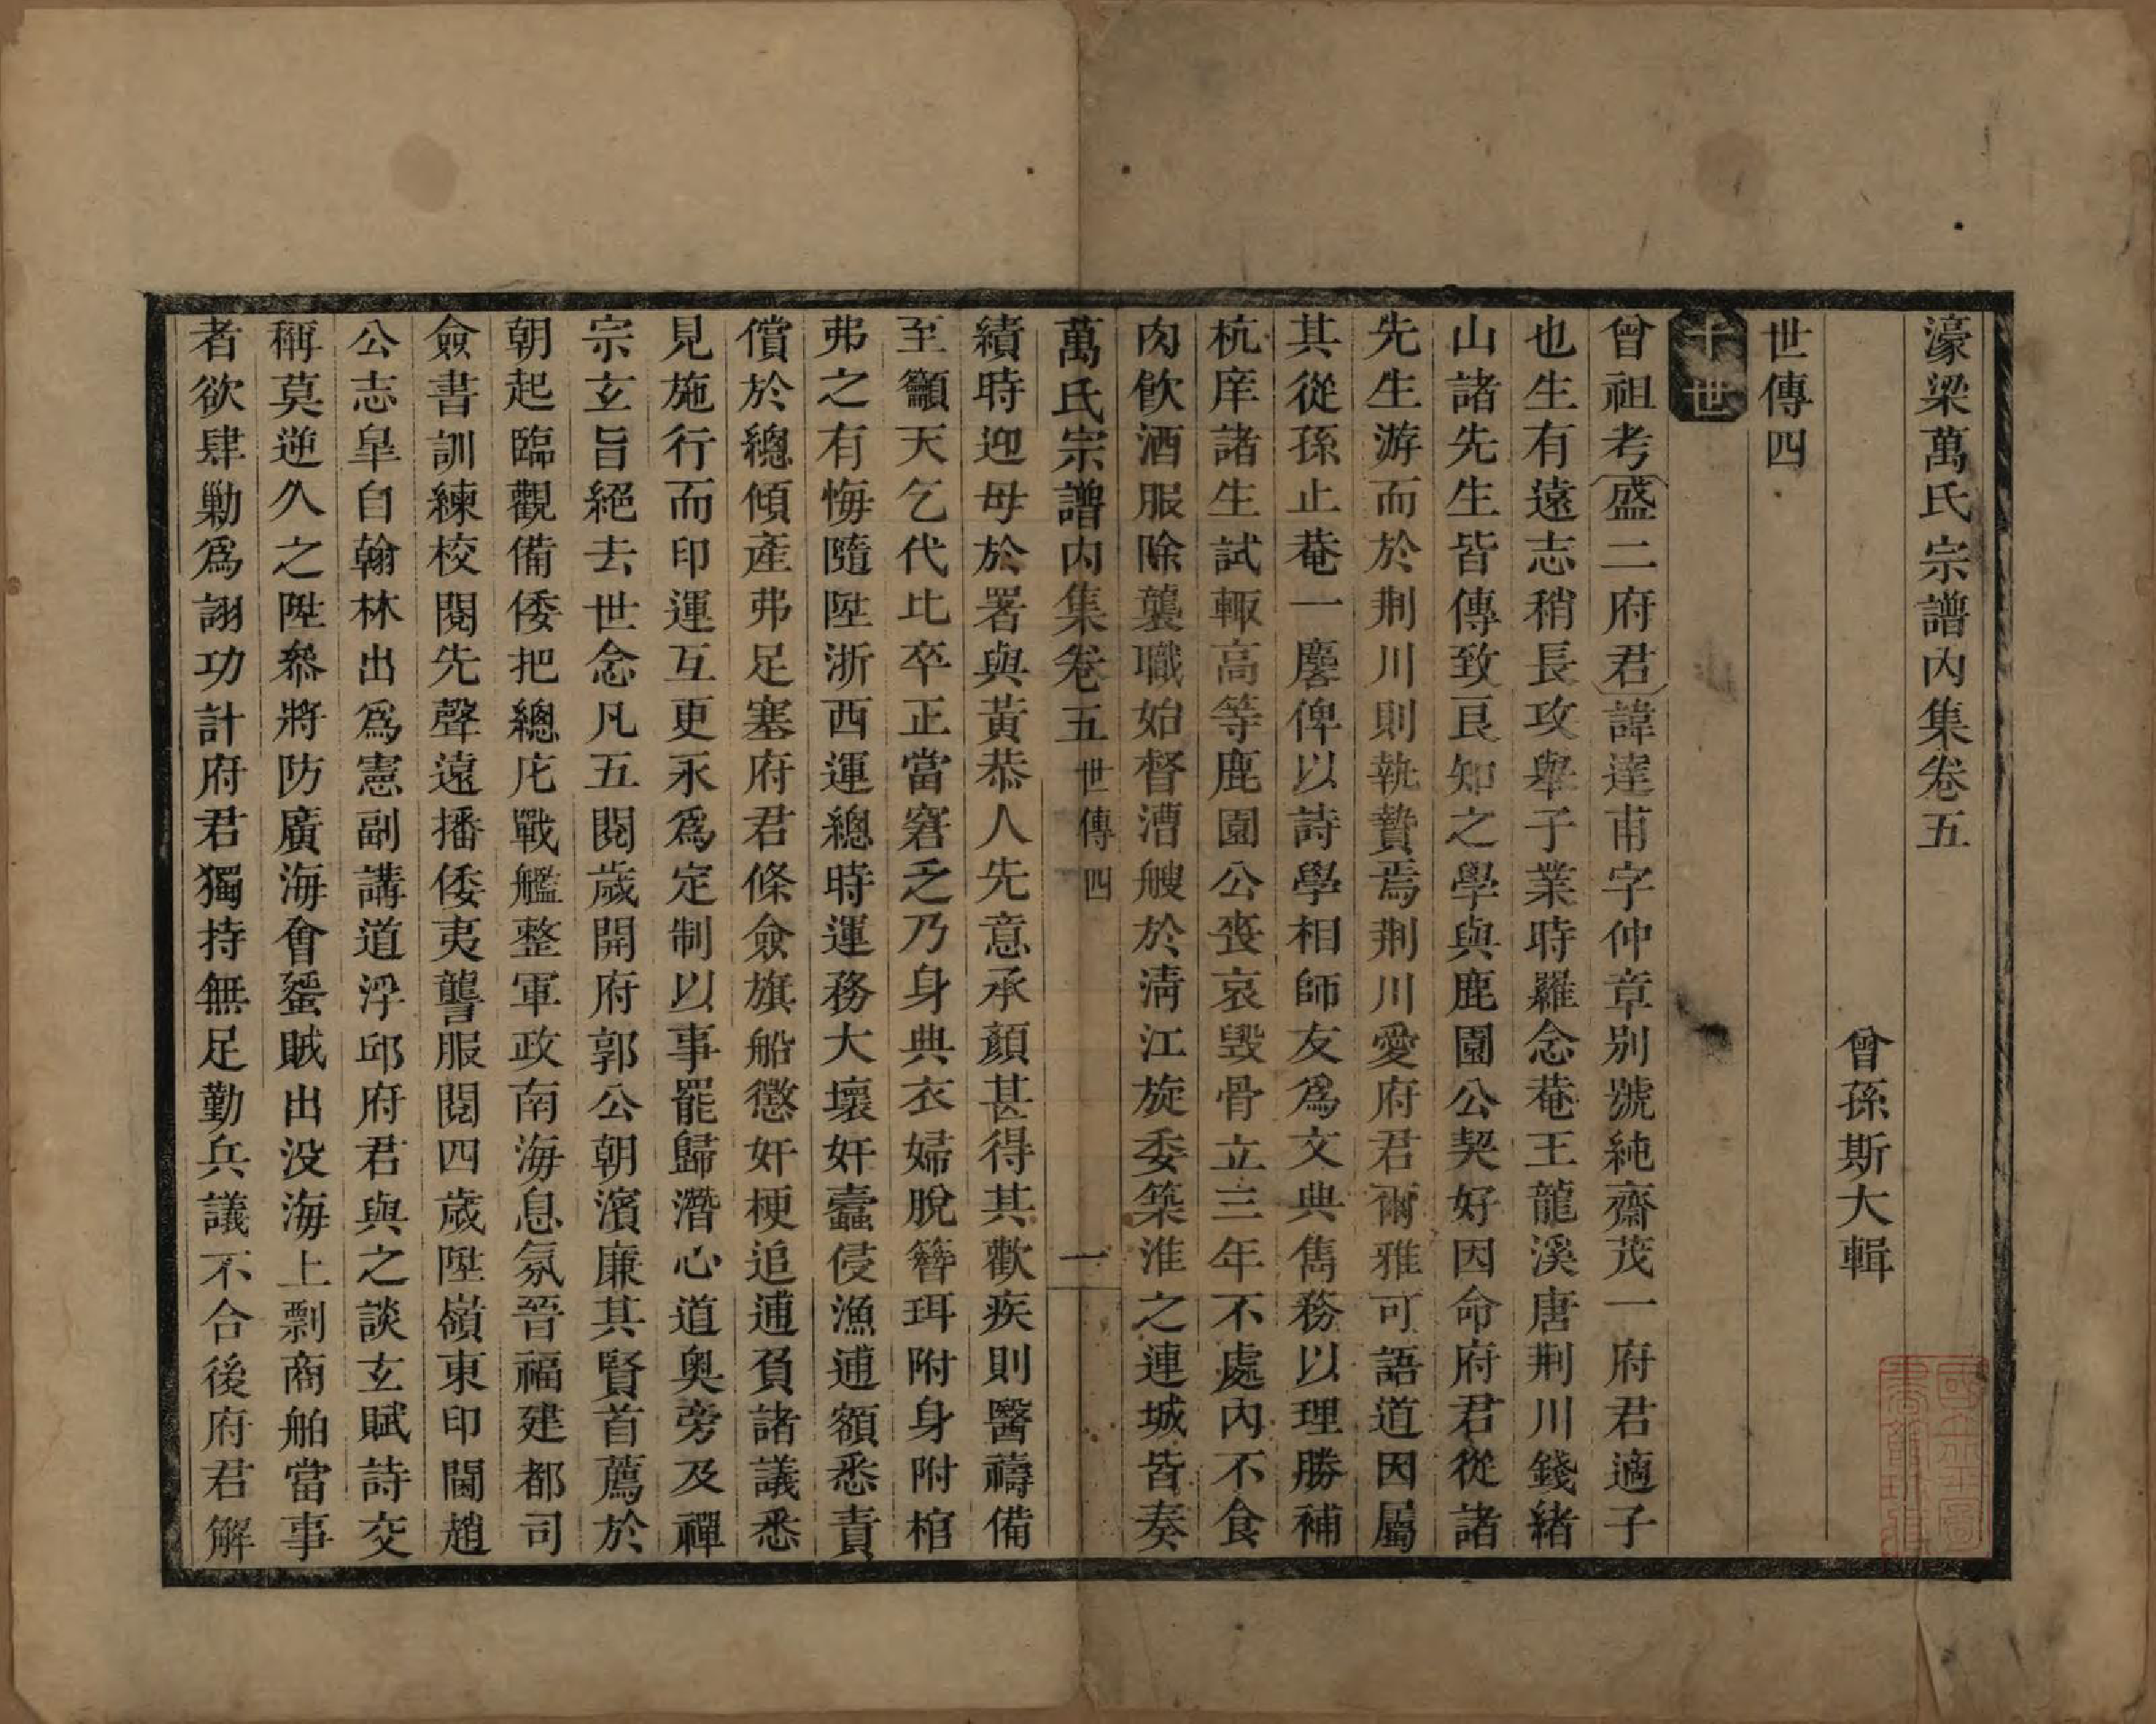 濠梁萬氏宗譜內集卷五
曾孫斯大輯
世傳四
十世
曾祖考盛二府君諱達甫字仲章別號純齋茂一府君適子
也生有遠志稍長攻舉子業時羅念菴王龍溪唐荆川錢緒
山諸先生皆傳致良知之學與鹿園公契好因命府君從諸
先生游而於荆川則執贄焉荆川愛府君爾雅可語道因屬
其從孫止菴一麐俾以詩學相師友爲文典雋務以理勝補
杭庠諸生試輙高等鹿園公喪哀毀骨立三年不處內不食
肉飮酒服除襲職始督漕艘於淸江旋委築淮之連城皆奏
萬氏宗譜内集卷五 世傳四 一
績時迎母於署與黃恭人先意承顏甚得其歡疾則醫禱備
至籲天乞代比卒正當窘乏乃身典衣婦脫簪珥附身附棺
弗之有悔隨陞浙西運總時運務大壞奸蠹侵漁逋額悉責
償於總傾產弗足塞府君條僉旗船懲奸梗追逋負諸議悉
見施行而印運互更永爲定制以事罷歸潛心道奥旁及禪
宗玄旨絕去世念凡五閱歲開府郭公朝濱廉其賢首薦於
朝起臨觀備倭把總庀戰艦整軍政南海息氛晉福建都司
僉書訓練校閱先聲遠播倭夷讋服閱四歲陞嶺東印閫趙
公志皐自翰林出爲憲副講道浮邱府君與之談玄賦詩交
稱莫逆久之陞叅將防廣海會蜑賊出没海上剽商舶當事
者欲肆勦爲詡功計府君獨持無足勤兵議不合後府君解